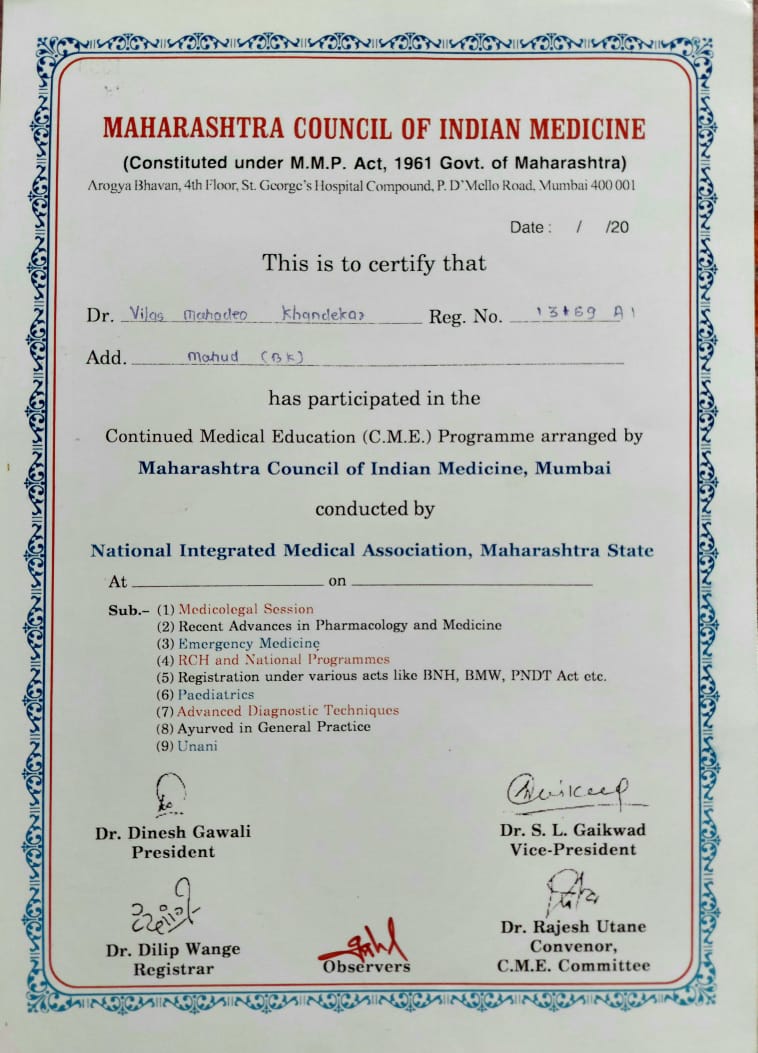 MAHARASHTRA COUNCIL OF INDIAN MEDICINE
(Constituted under M.M.P. Act, 1961 Govt. of Maharashtra)
Arogya Bhavan, 4th Floor, St. George's Hospital Compound, P. D'Mello Road, Mumbai 400 001
Date : / /20
This is to certify that
Dr. Vilas Mahadeo Khandekar Reg. No.
Add. Mahud (BK)
has participated in the
Continued Medical Education (C.M.E.) Programme arranged by
Maharashtra Council of Indian Medicine, Mumbai
conducted by
National Integrated Medical Association, Maharashtra State
At ____________ on ____________
Sub.– (1) Medicolegal Session
(2) Recent Advances in Pharmacology and Medicine
(3) Emergency Medicine
(4) RCH and National Programmes
(5) Registration under various acts like BNH, BMW, PNDT Act etc.
(6) Paediatrics
(7) Advanced Diagnostic Techniques
(8) Ayurved in General Practice
(9) Unani
Dr. Dinesh Gawali
President
Dr. S. L. Gaikwad
Vice-President
Dr. Dilip Wange
Registrar
Observers
Dr. Rajesh Utane
Convenor,
C.M.E. Committee